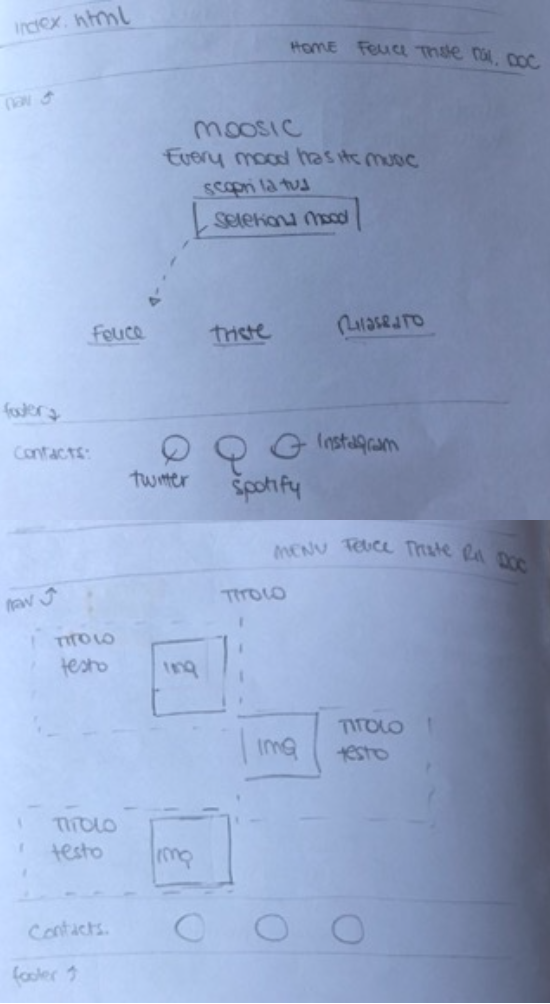 index.html
HOME Felice Triste Ril. DOC
nav
MOOSIC
Every mood has its music
scopri la tua
Seleziona mood
Felice Triste Rilassato
footer
Contacts: Instagram
twitter Spotify
MENU Felice Triste Ril DOC
nav
TITOLO
TITOLO
testo
img
img
TITOLO
testo
TITOLO
testo
img
Contacts:
footer